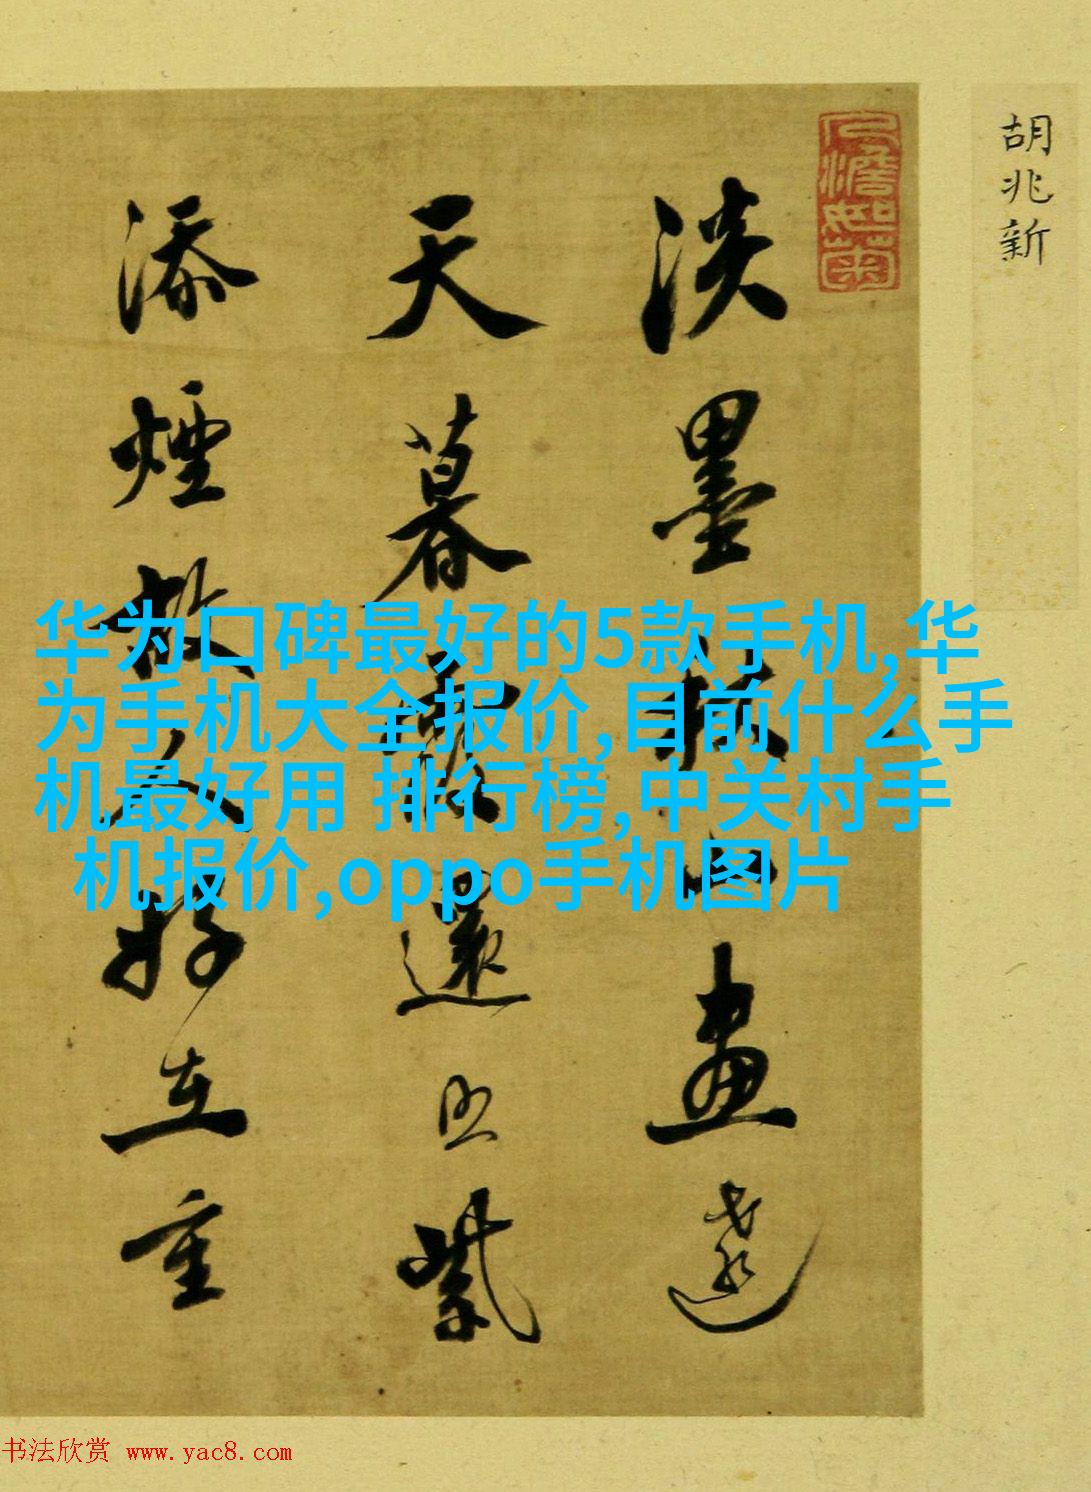 胡兆新
人澹如菊
淡墨秋山畫遠
天暮霞還照紫
添煙故人好在重
华为口碑最好的5款手机,华
为手机大全报价,目前什么手
机最好用 排行榜,中关村手
机报价,oppo手机图片
书法欣赏 www.yac8.com